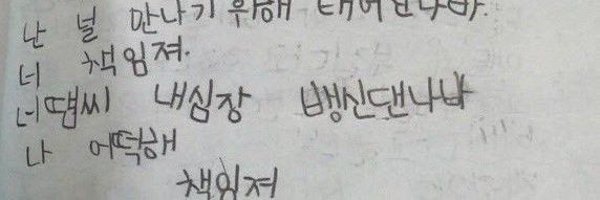 난 널 만나기 위해 태어난나바.
너 책임져.
너땜씨 내심장 뱅신댄나바
나 어떡해
책임져